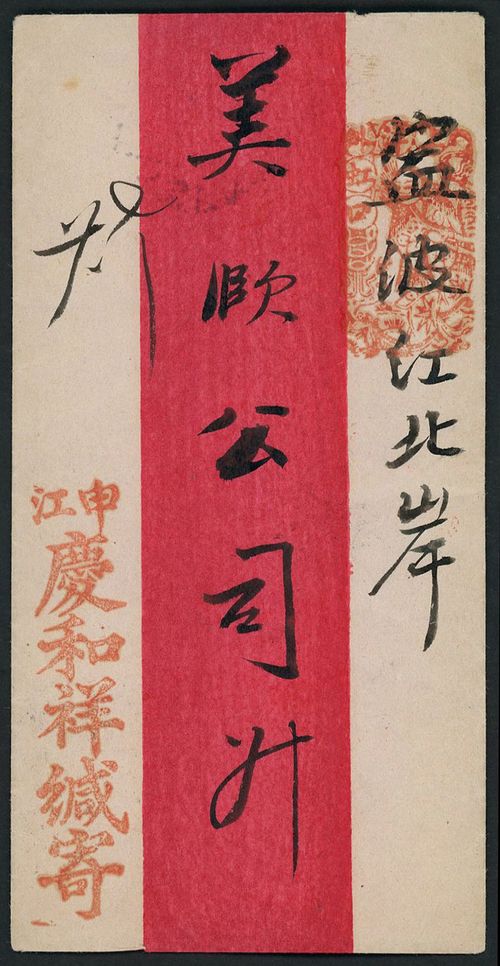 寍波江北岸
美公司升
申江
慶和祥緘寄